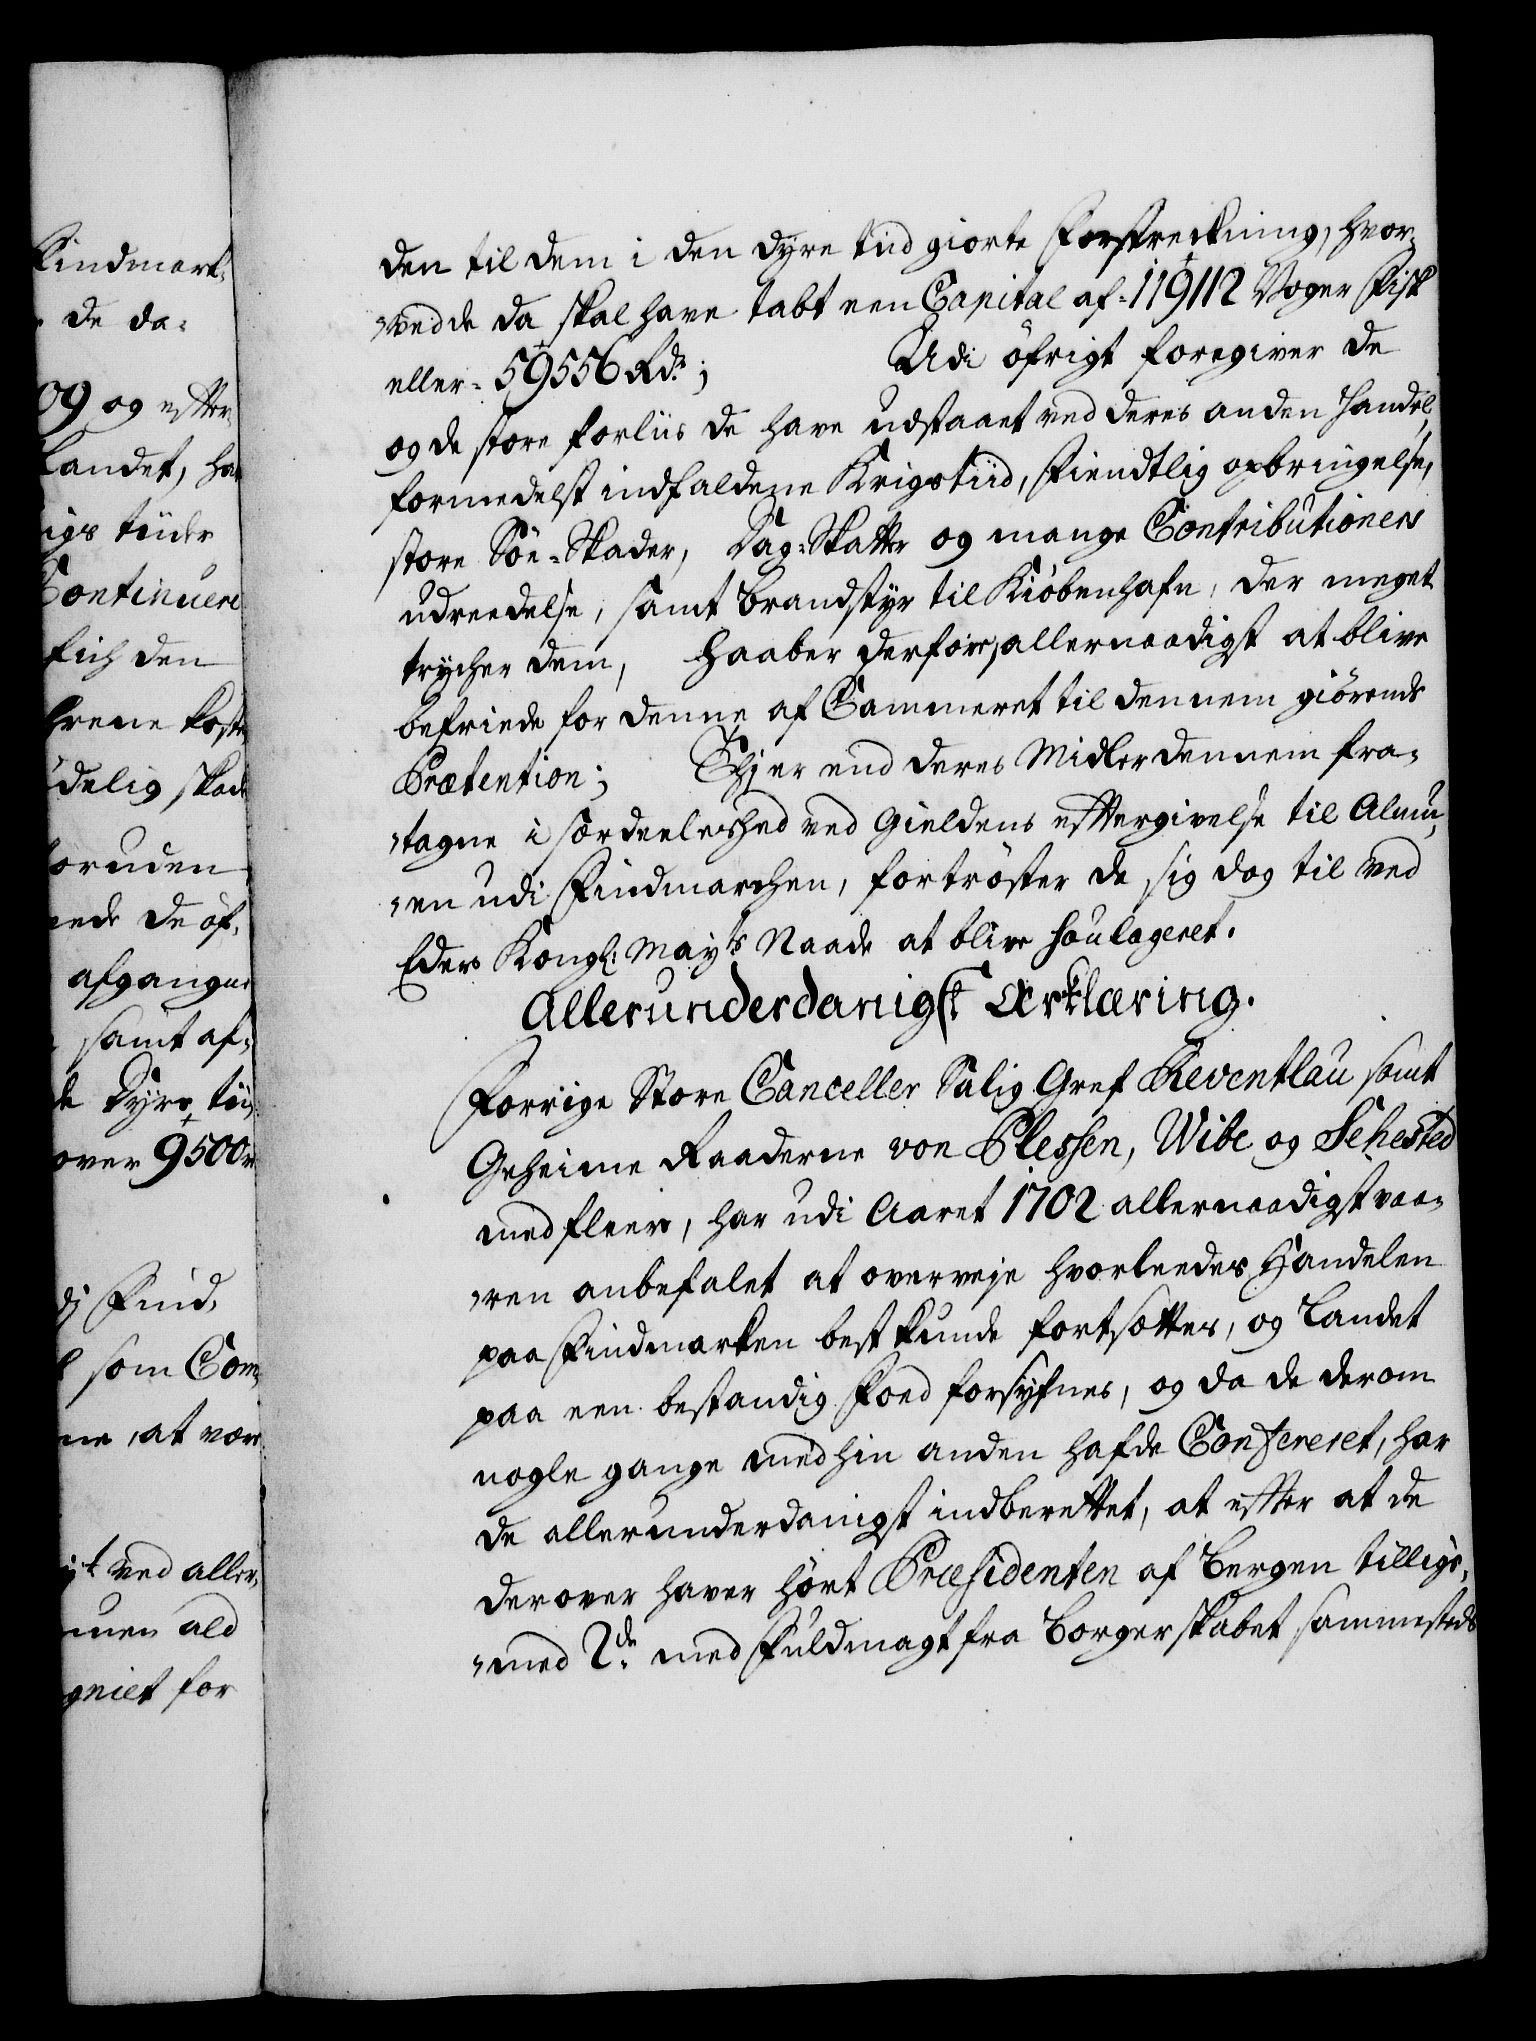 Findmark-
de da-
09 og efter
Landet, har
igs tiider
Continuere
fich den
hrene koste
delig skade
foruden
nede de øf,
afgangne
samt af-
de dyre tii
over 9500
dj Find,
som Com,
ne, at være
it ved aller,
men ald
gniet for
den til dem i den dyre tiid giorte Forstreckning, hvor-
ved de da skal have tabt een Capital af 119112 Voger Fisk
eller 59556 Rdr; Udi øfrigt foregiver de
og de store forliis de have udstaaet ved deres anden Handel,
formedelst indfaldene Krigstiid, Fiendtlig opbringelse,
store Søe-Skader, Dag-Skatter og mange Contributioners
udreedelse, samt brandstyr til Kiøbenhafn, der meget
trycher dem, haaber derfore, allernaadigst at blive
befriede for denne af Cammeret til dennem giørende
Prætention; Thj er end deres Midler dennem fra-
tagne i særdeeleshed ved Gieldens eftergivelse til Almu,
en udi Findmarchen, fortrøster de sig dog til ved
Eders Kongl: Mayts Naade at blive soulageret.
Allerunderdanigst Erklæring.
Forrige Store Canceller Salig Gref Reventlau samt
Geheime Raaderne von Plessen, Wibe og Sehested
med fleere, har udi Aaret 1702 allernaadigst vaa-
ren anbefalet at overveje hvorleedes Handelen
paa Findmarken best kunde fortsættes, og Landet
paa een bestandig Foed forsyfnes, og da de derom
nogle gange med hin anden hafde Confereret, har
de allerunderdanigst indberettet, at efter at de
derover haver hørt Præsidenten af Bergen tillige,
med 2de med Fuldmagt fra Borgerskabet sammesteds